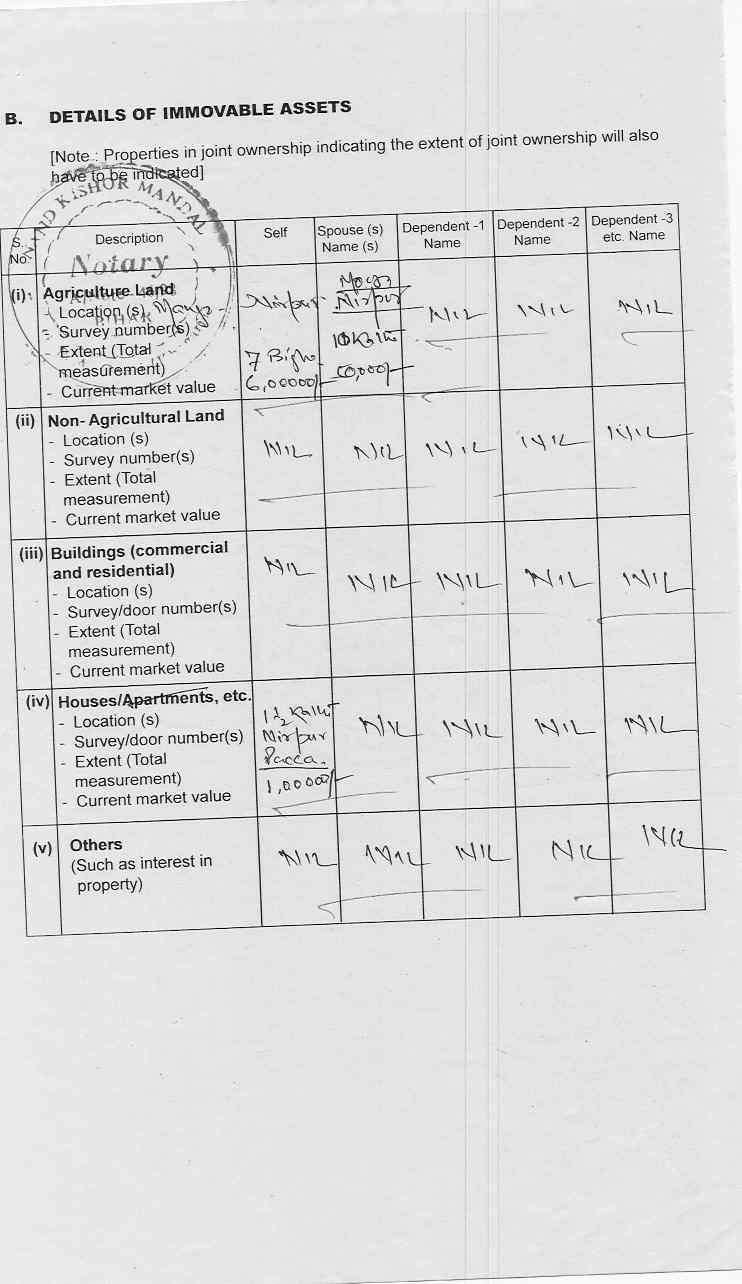 B. DETAILS OF IMMOVABLE ASSETS
[Note : Properties in joint ownership indicating the extent of joint ownership will also
have to be indicated]
KISHOR MANDAL
Notary
S. No. Description Self Spouse (s) Name (s) Dependent -1 Name Dependent -2 Name Dependent -3 etc. Name
(i) Agriculture Land
- Location (s)
- Survey number(s)
- Extent (Total
measurement)
- Current market value
Mirpur
7 Bigha
6,00000/-
Mirpur
NIL NIL NIL
(ii) Non- Agricultural Land
- Location (s)
- Survey number(s)
- Extent (Total
measurement)
- Current market value
NIL NIL NIL NIL NIL
(iii) Buildings (commercial
and residential)
- Location (s)
- Survey/door number(s)
- Extent (Total
measurement)
- Current market value
NIL NIL NIL NIL NIL
(iv) Houses/Apartments, etc.
- Location (s)
- Survey/door number(s)
- Extent (Total
measurement)
- Current market value
Mirpur
Pacca.
1,00000/-
NIL NIL NIL NIL
(v) Others
(Such as interest in
property)
NIL NIL NIL NIL NIL